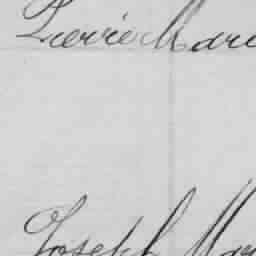 Pierre Marc
Joseph Mar